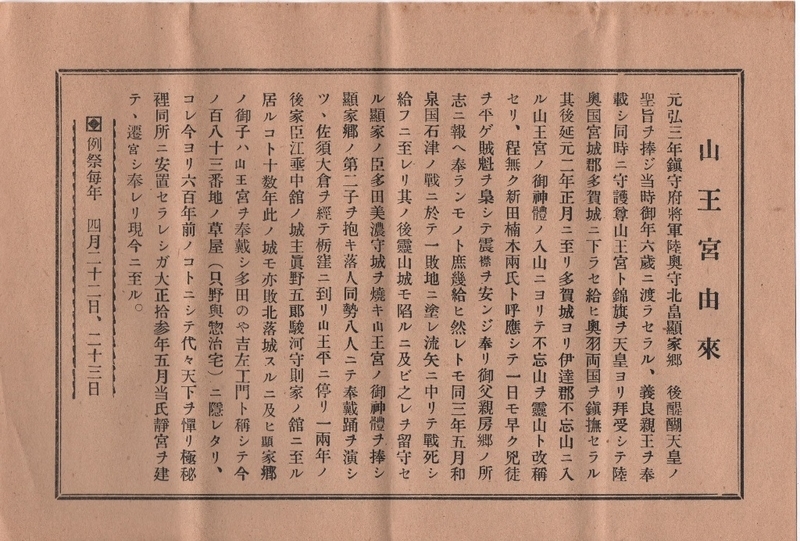 山王宮由來
元弘三年鎭守府將軍陸奧守北畠顯家郷　後醍醐天皇ノ
聖旨ヲ捧ジ当時御年六歲ニ渡ラセラル、義良親王ヲ奉
載シ同時ニ守護尊山王宮ト錦旗ヲ天皇ヨリ拜受シテ陸
奥国宮城郡多賀城ニ下ラセ給ヒ奥羽両国ヲ鎭撫セラル
其後延元二年正月ニ至リ多賀城ヨリ伊達郡不忘山ニ入
ル山王宮ノ御神體ノ入山ニヨリテ不忘山ヲ靈山ト改稱
セリ、程無ク新田楠木両氏ト呼應シテ一日モ早ク兇徒
ヲ平ゲ賊魁ヲ梟シテ震襟ヲ安ンジ奉リ御父親房郷ノ所
志ニ報ヘ奉ランモノト庶幾給ヒ然レトモ同三年五月和
泉国石津ノ戰ニ於テ一敗地ニ塗レ流矢ニ中リテ戰死シ
給フニ至レリ其ノ後靈山城モ陷ルニ及ビ之レヲ留守セ
ル顯家ノ臣多田美濃守城ヲ燒キ山王宮ノ御神體ヲ捧シ
顯家郷ノ第二子ヲ抱キ落人同勢八人ニテ奉戴踊ヲ演シ
ツ、佐須大倉ヲ經テ栃窪ニ到リ山王平ニ停リ一両年ノ
後家臣江垂中舘ノ城主眞野五郞駿河守則家ノ舘ニ至ル
居ルコト十数年此ノ城モ亦敗北落城スルニ及ヒ顯家郷
ノ御子ハ山王宮ヲ奉戴シ多田のや吉左工門ト稱シテ今
ノ百八十三番地ノ草屋（只野與惣治宅）ニ隱レタリ、
コレ今ヨリ六百年前ノコトニシテ代々天下ヲ憚リ極秘
裡同所ニ安置セラレシガ大正拾参年五月当氏靜宮ヲ建
テ、遷宮シ奉レリ現今ニ至ル。
◆例祭每年　四月二十二日、二十三日